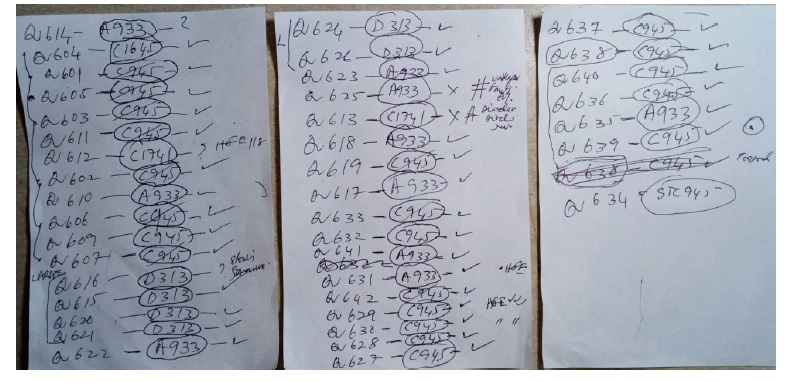 Q614 - A933 - ?
Q604 - C1645 - ✓
Q601 - C945 - ✓
Q605 - C945 - ✓
Q603 - C945 - ✓
Q611 - C945 - ✓
Q612 - C1741 - ? HFE 118
Q602 - C945 - ✓
Q610 - A933 - ✓
Q606 - C945 - ✓
Q609 - C945 - ✓
Q607 - C945 - ✓
Q616 - D313 - ?
Q615 - D313 - ✓
Q620 - D313 - ✓
Q621 - D313 - ✓
Q622 - A933 - ✓
L
Q624 - D313 - ✓
Q626 - D313 - ✓
Q623 - A933 - ✓
Q625 - A933 - x #
Q613 - C1741 - x #
Q618 - A933 - ✓
Q619 - C945 - ✓
Q617 - A933 - ✓
Q633 - C945 - ✓
Q632 - C945 - ✓
Q641 - A933 - ✓
Q631 - A933 - ✓ HFE
Q642 - C945 - ✓
Q629 - C945 - ✓ HFE
Q630 - C945 - ✓ " "
Q628 - C945 - ✓
Q627 - C945 - ✓
Q637 - C945 - ✓
Q638 - C945 - ✓
Q640 - C945 - ✓
Q636 - C945 - ✓
Q635 - A933 - ✓
Q639 - C945 - ✓
Q638 - C945 - ✓
Q634 - STC945